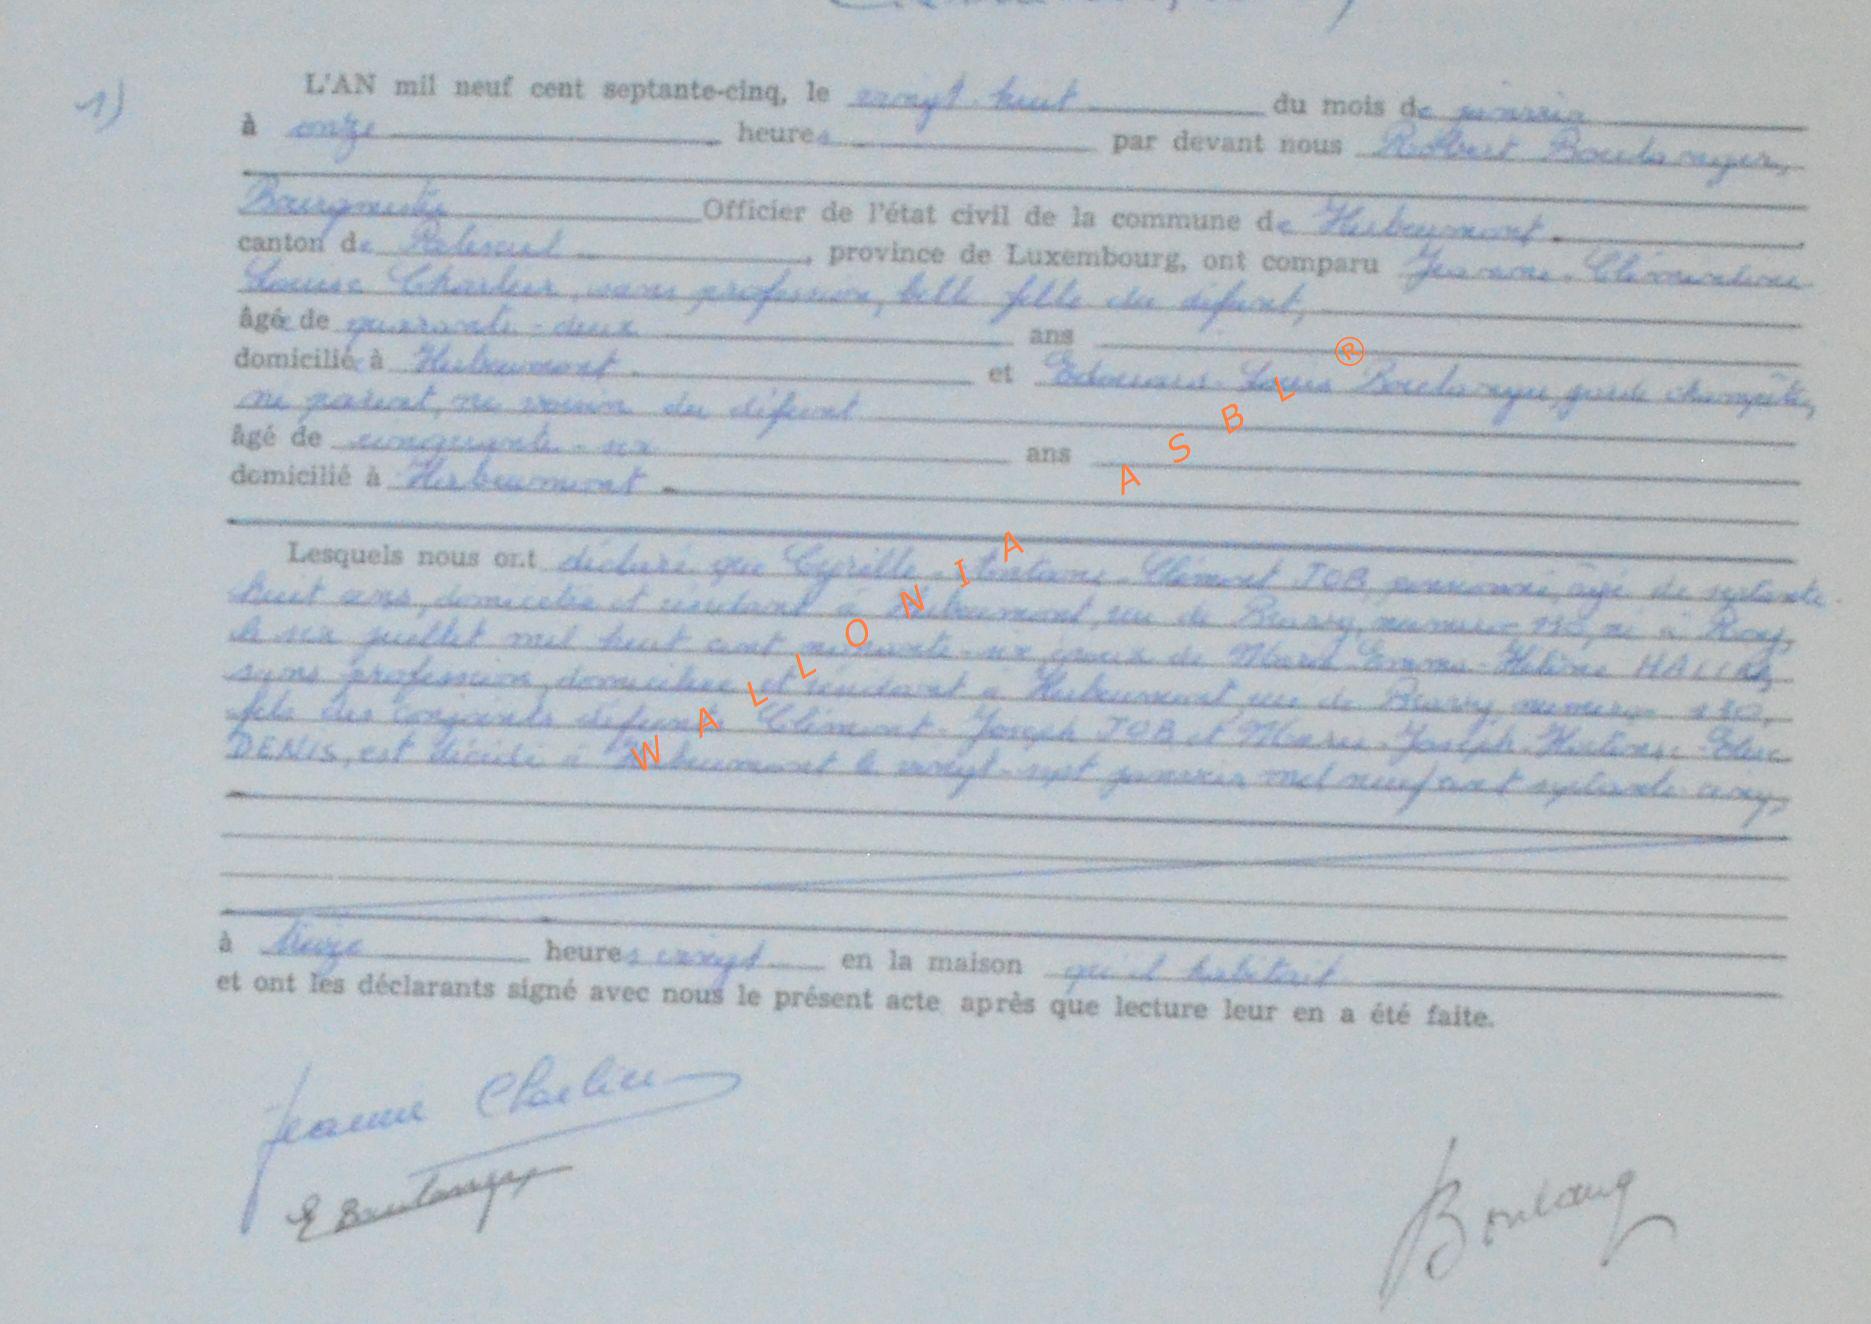 1)
L'AN mil neuf cent septante-cinq, le vingt-huit du mois de janvier
à onze heures par devant nous Robert Boulanger,
Bourgmestre Officier de l'état civil de la commune de Herbeumont
canton de Paliseul, province de Luxembourg, ont comparu Jeanne-Clémentine
Louise Charlier, sans profession, belle fille du défunt,
âgée de quarante-deux ans
domiciliée à Herbeumont et Edouard-Louis Boulanger, garde champêtre,
ni parent, ni voisin du défunt
âgé de cinquante-six ans
domicilié à Herbeumont
Lesquels nous ont déclaré que Cyrille-Antoine-Clément JOB, pensionné, âgé de septante-
huit ans, domicilié et résidant à Herbeumont, rue de numéro né à
le six juillet mil huit cent nonante-six, époux de Marie-Emma-Hélène
sans profession, domiciliée et résidant à Herbeumont, rue de numéro
fils des conjoints défunts Clément-Joseph JOB et Marie-Joseph- -Elise
DENIS, est décédé à Herbeumont le vingt-sept janvier mil neuf cent septante-cinq,
à heures vingt en la maison qu'il habitait
et ont les déclarants signé avec nous le présent acte après que lecture leur en a été faite.
Jeanne Charlier
E Boulanger
Boulang
WALLONIA ASBL ®